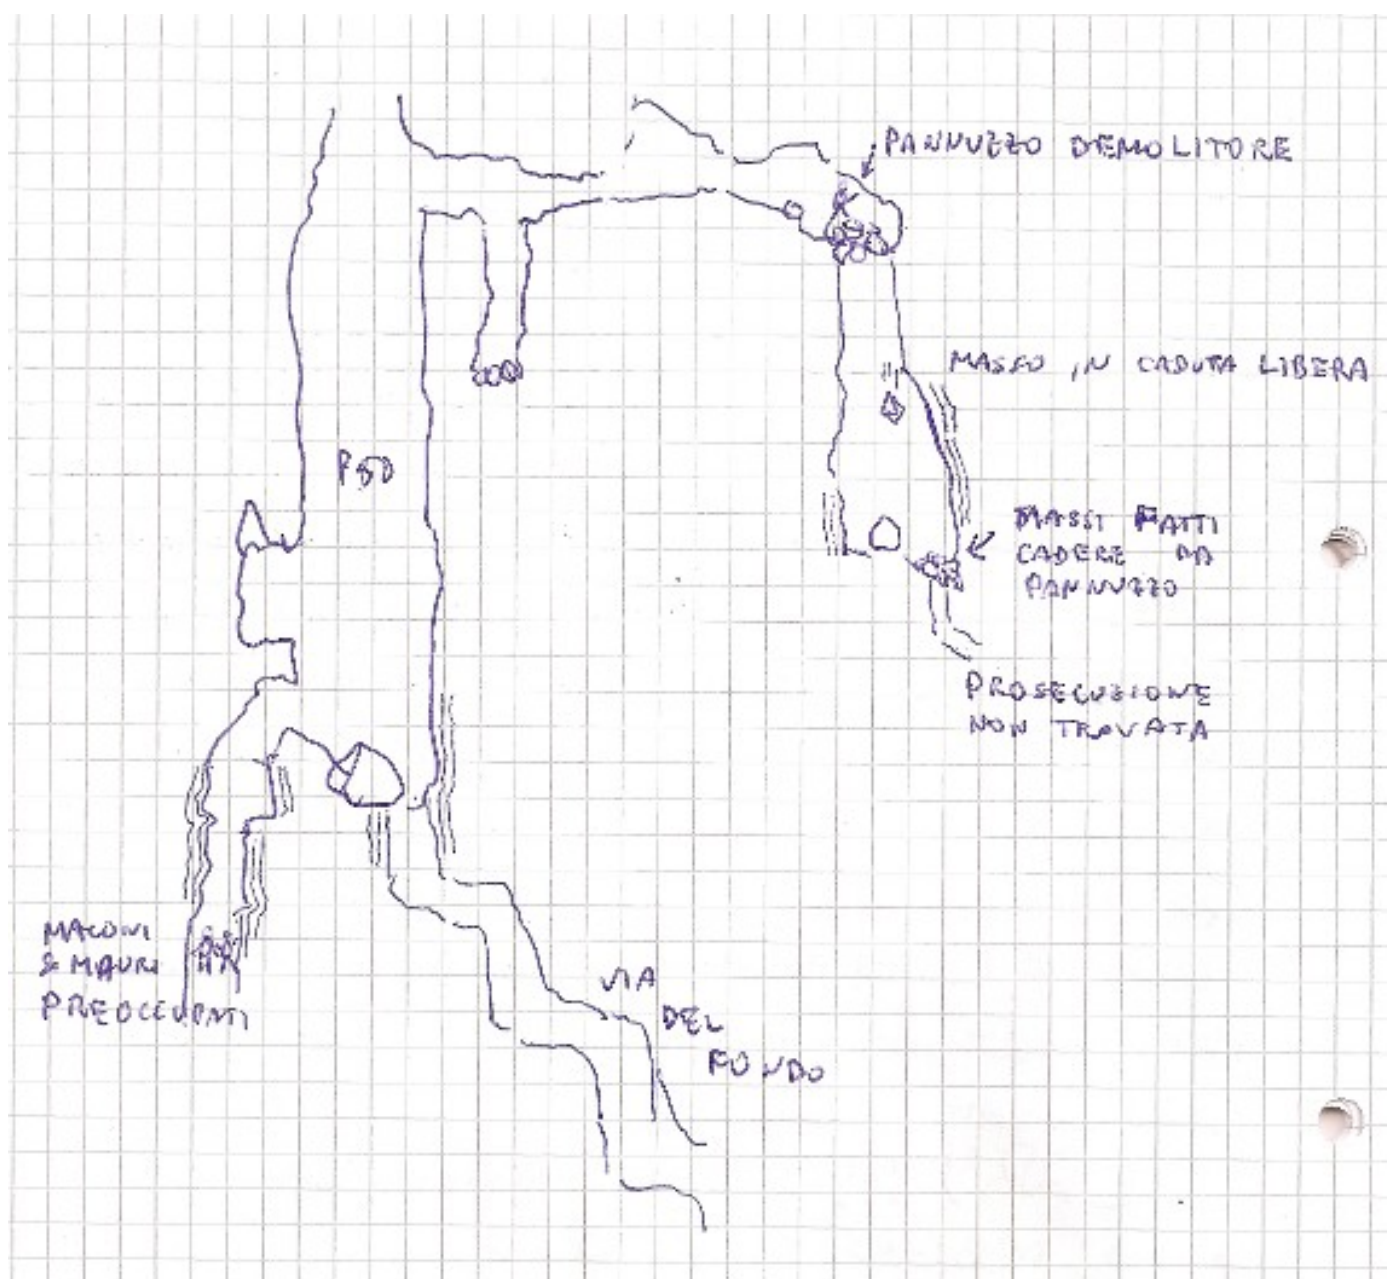 PANNUZZO DEMOLITORE
MASSO IN CADUTA LIBERA
P50
MASSI FATTI
CADERE DA
PANNUZZO
PROSECUZIONE
NON TROVATA
MACONI
& MAURI
PREOCCUPATI
VIA
DEL
FONDO